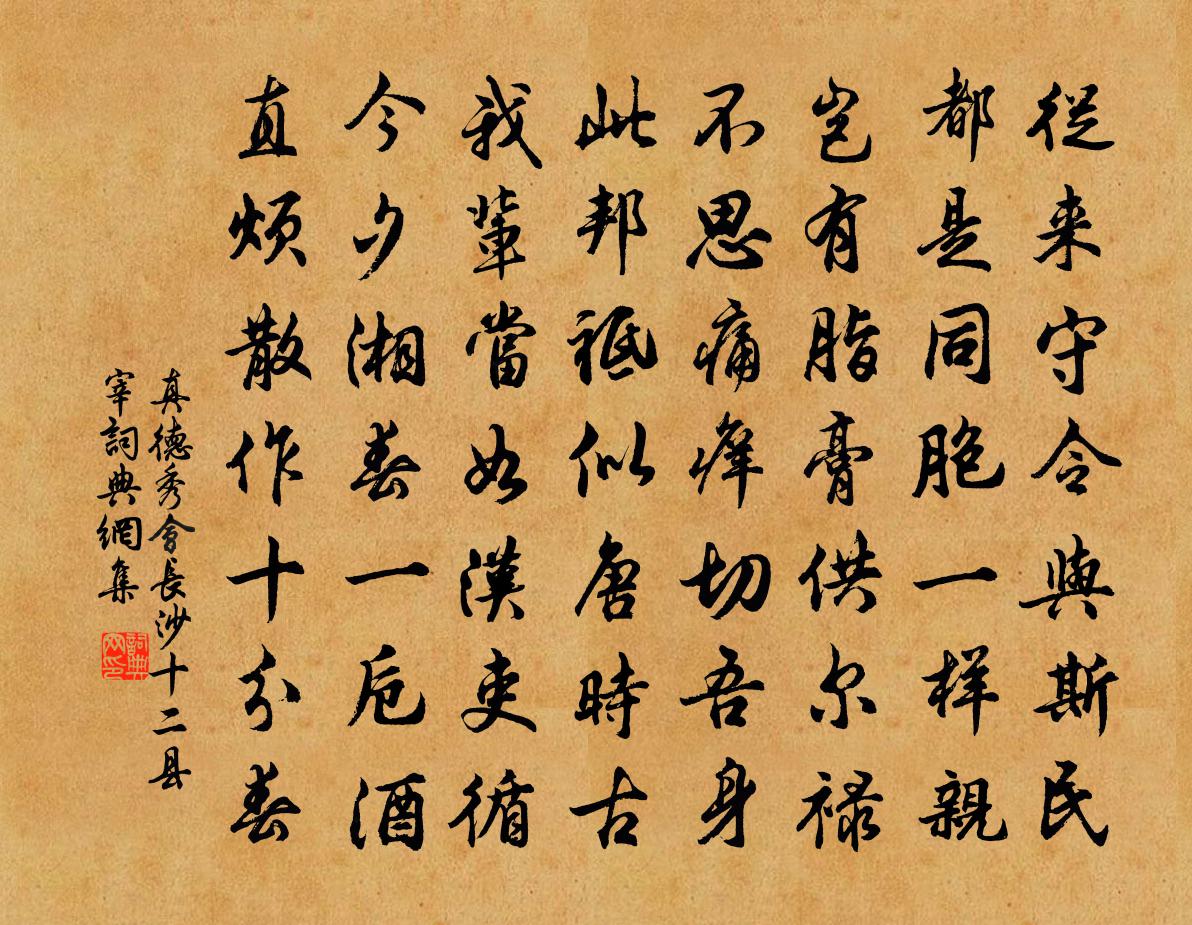 從来守令與斯民
都是同胞一样親
豈有脂膏供尔禄
不思痛癢切吾身
此邦祗似唐時古
我輩當如漢吏循
今夕湘春一卮酒
直煩散作十分春
真德秀會長沙十二县
宰詞典網集
詞典網印